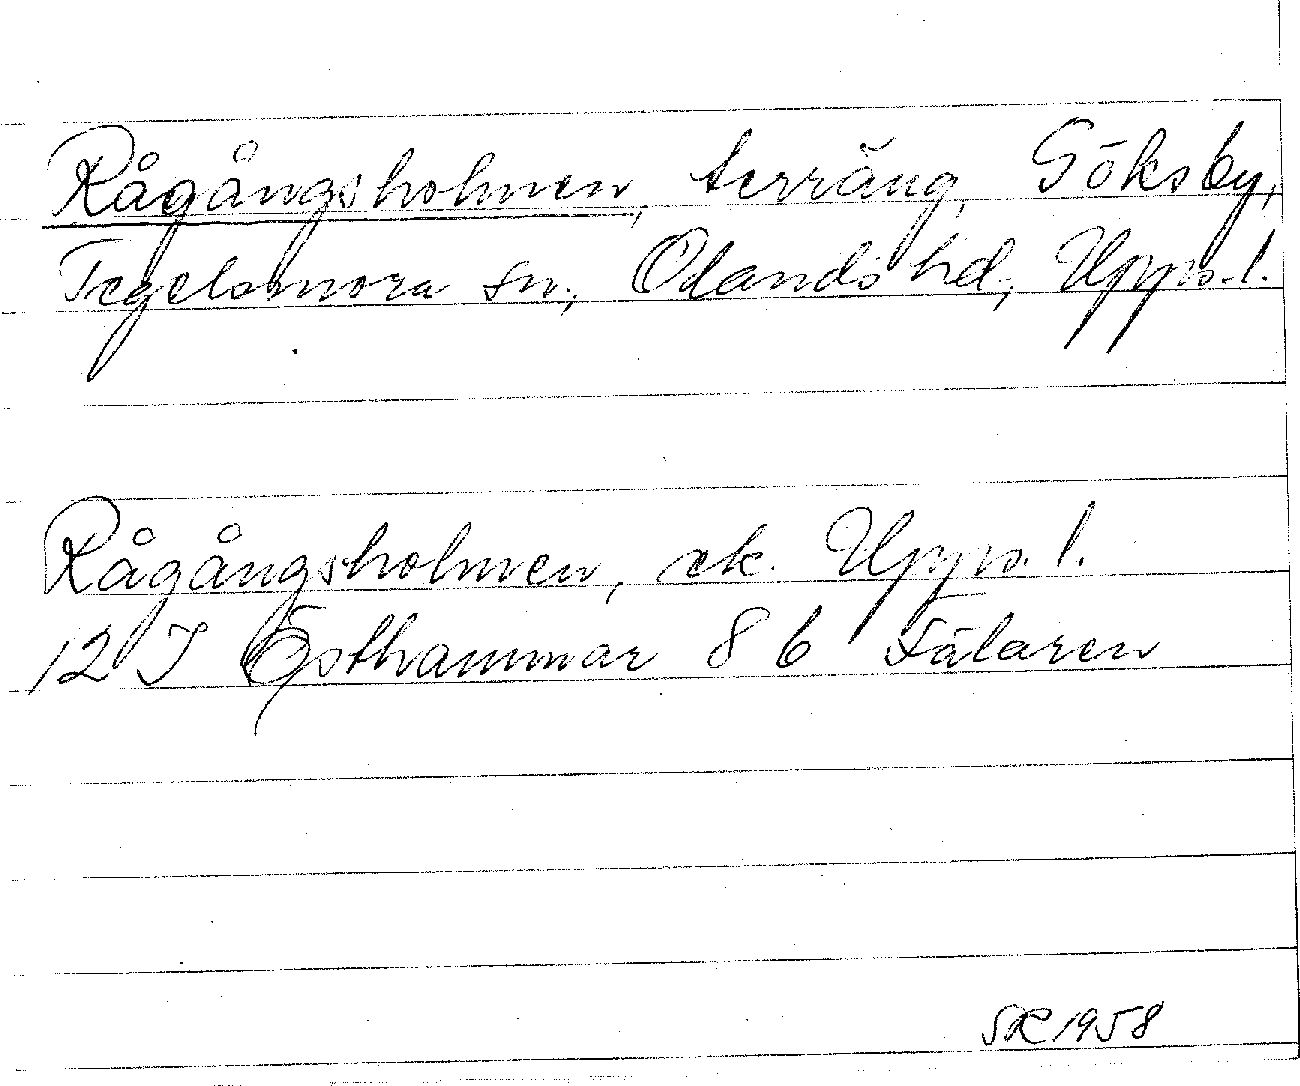 Rågångsholmen, terräng, Göksby,
Tegelsmora sn., Olands hd, Upps.l.
Rågångsholmen, ek. Upps.l.
12 I Östhammar 8 b Fälaren
SR 1958